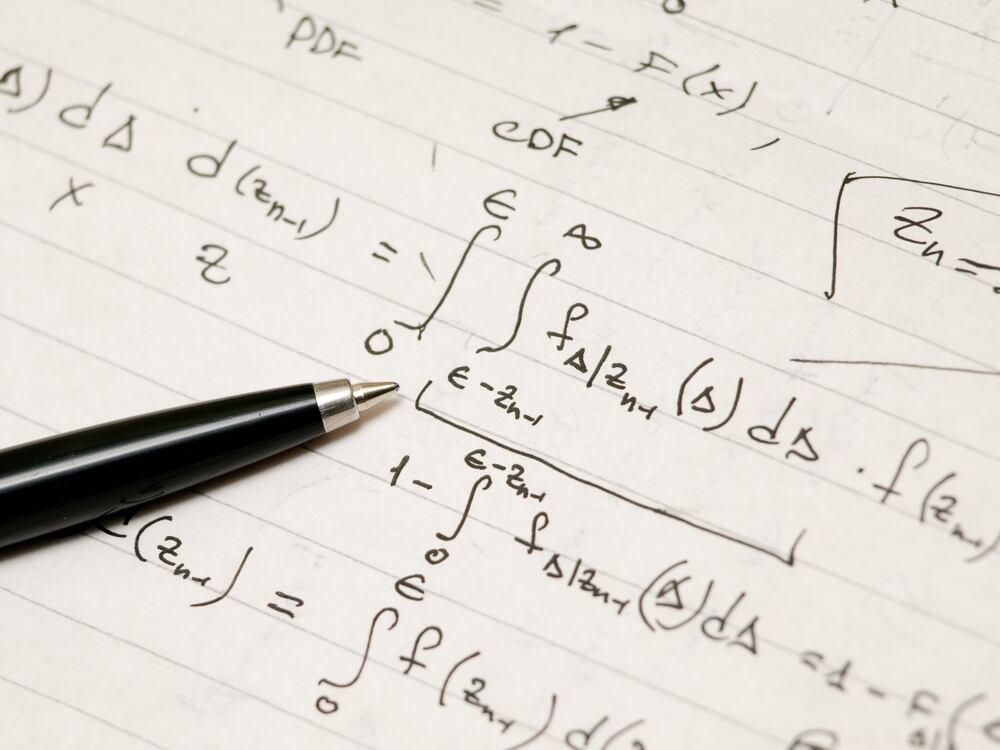 PDF
1 - F(x),
CDF
Δ) dΔ d(z_{n-1}) = \int_0^ϵ \int_{ϵ-z_{n-1}}^∞ f_{Δ|z_{n-1}}(Δ) dΔ · f(z_{n-1})
x
z
z_n =
1 - \int_0^{ϵ-z_{n-1}} f_{Δ|z_{n-1}}(Δ) dΔ = 1 - F
(z_{n-1}) = \int_0^ϵ f(z_{n-1}) d(